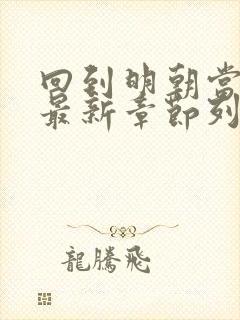 回到明朝当
最新章节列
龍騰飛